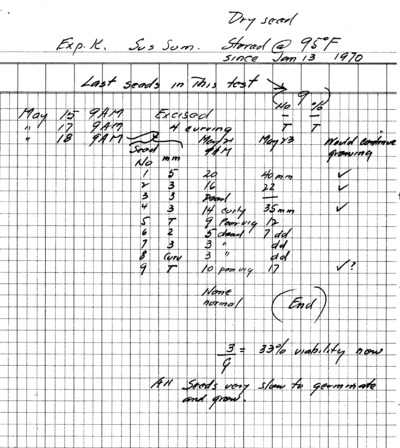 Dry seed
Exp. K. Sus Sum. Stored @ 95°F
since Jan 13 1970
Last seeds in This test → 9
No %
May 15 9AM Excised — —
" 17 9AM 4 curving T T
" 18 9AM May 21 May 23 Would continue
Seed mm 9AM growing
No
1 5 20 40 mm ✓
2 3 16 22 ✓
3 3 Dead —
4 3 14 curly 35 mm ✓
5 T 9 Poor vig 12
6 2 5 dead 7 dd
7 3 3 " dd
8 Curv 3 " dd
9 T 10 poor vig 17 ✓?
None
normal (End)
3/9 = 33% viability now
All Seeds very slow to germinate
and grow.